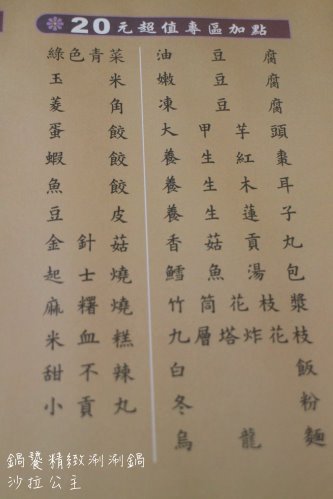 20元超值專區加點
綠色青菜
玉米
菱角
蛋餃
蝦餃
魚餃
豆皮
金針菇
起士燒
麻糬燒
米血糕
甜不辣
小貢丸
油豆腐
嫩豆腐
凍豆腐
大甲芋頭
養生紅棗
養生木耳
養生蓮子
香菇貢丸
鱈魚湯包
竹筒花枝漿
九層塔炸花枝
白飯
冬粉
烏龍麵
鍋饕精緻涮涮鍋
沙拉公主